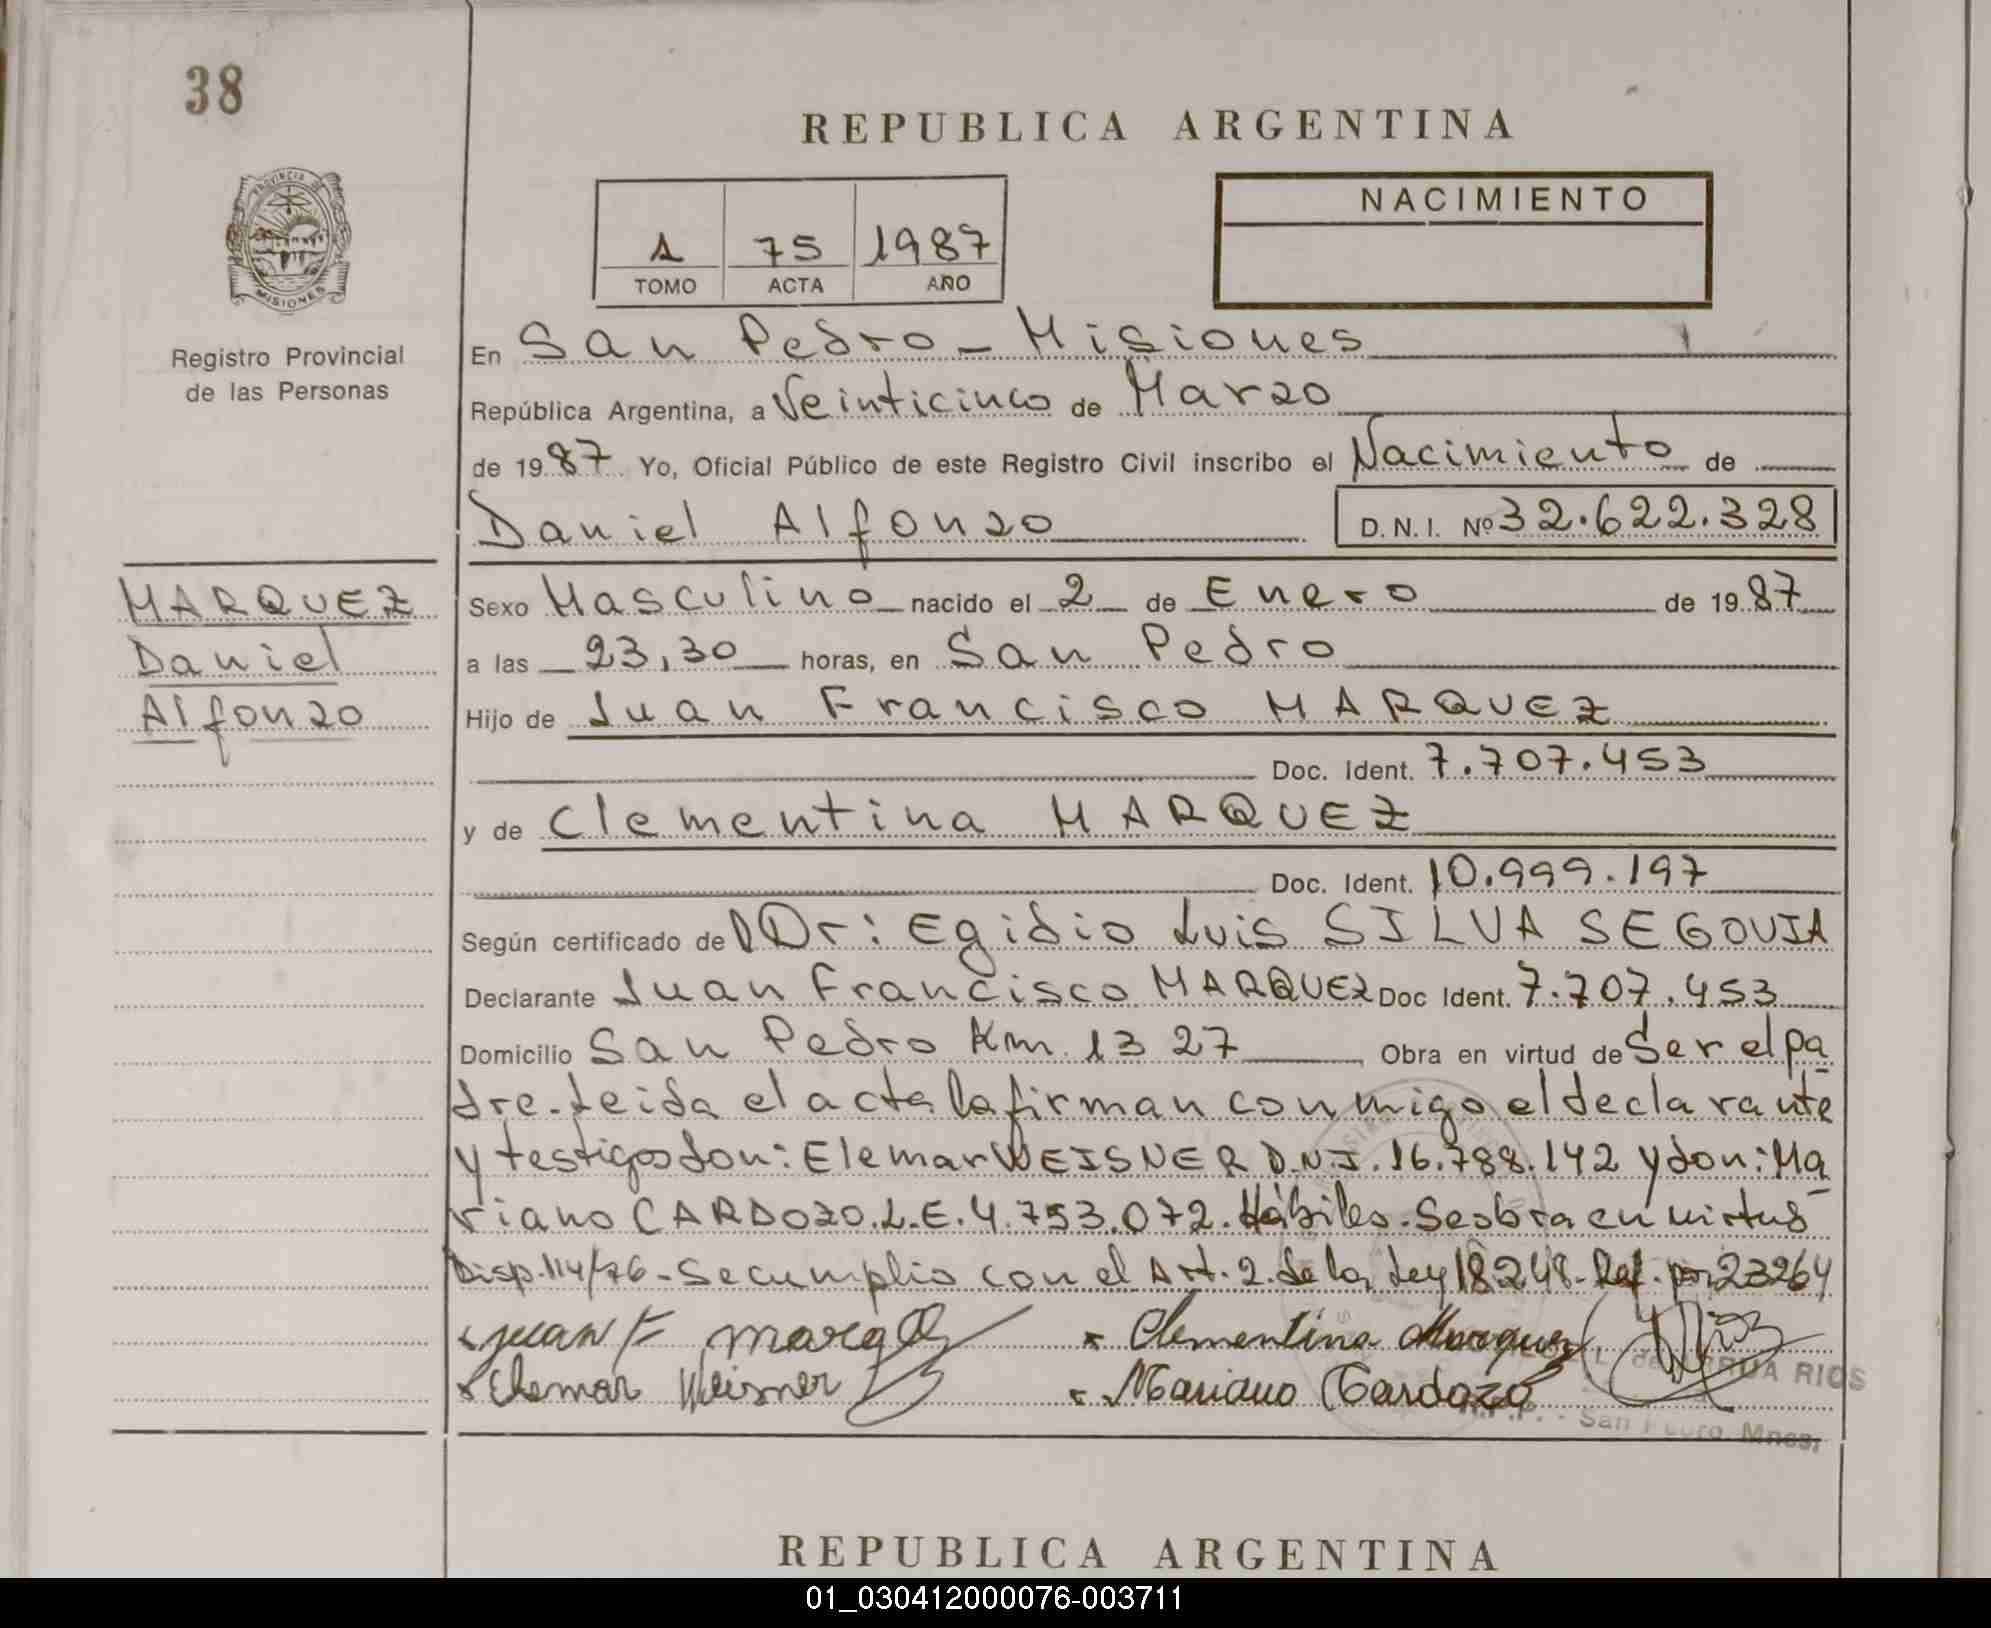 38
REPUBLICA ARGENTINA
PROVINCIA DE
MISIONES
Registro Provincial
de las Personas
1 75 1987
TOMO ACTA AÑO
NACIMIENTO
En San Pedro - Misiones
República Argentina, a Veinticinco de Marzo
de 1987 Yo, Oficial Público de este Registro Civil inscribo el Nacimiento de
Daniel Alfonzo D.N.I. Nº 32.622.328
MARQUEZ
Daniel
Alfonzo
Sexo Masculino nacido el 2 de Enero de 1987
a las 23,30 horas, en San Pedro
Hijo de Juan Francisco MARQUEZ
Doc. Ident. 7.707.453
y de Clementina MARQUEZ
Doc. Ident. 10.999.197
Según certificado de Dr: Egidio Luis SILVA SEGOVIA
Declarante Juan Francisco MARQUEZ Doc Ident. 7.707.453
Domicilio San Pedro Km 13 27 Obra en virtud de Ser el pa
dre. Leida el acta la firman conmigo el declarante
y testigos don: Elemar WEISNER D.N.I. 16.788.142 y don: Ma
riano CARDOZO. L.E. 4.753.072. Hábiles. Se obra en virtud
Disp. 114/76 - Se cumplio con el Art. 2. de la Ley 18248. Ref. por 23264
Juan F Marq Clementina Marquez
Elemar Weisner Mariano Cardozo
RUA RIOS
R.P.P. - San Pedro Mnes.
REPUBLICA ARGENTINA
01_030412000076-003711